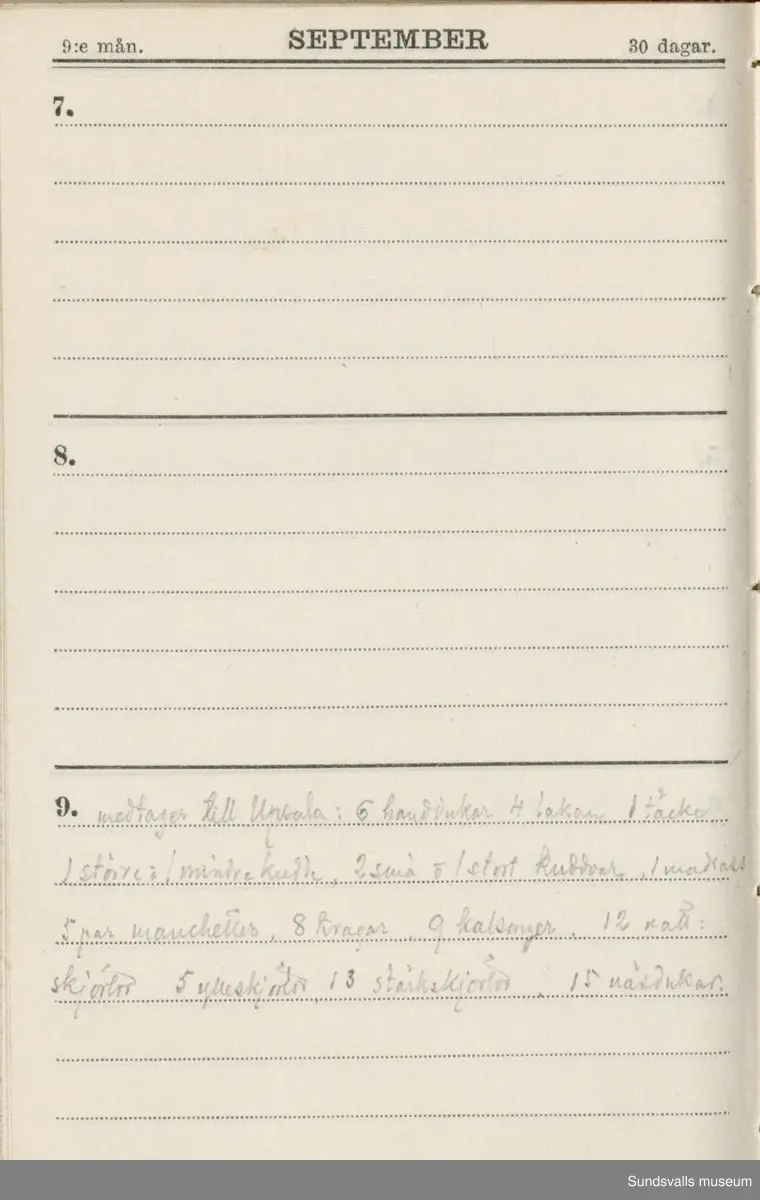 9:e mån. SEPTEMBER 30 dagar.
7.
8.
9. medtager till Upsala: 6 handdukar 4 lakan 1 täcke
1 större o 1 mindre kudde, 2 små o 1 stort kuddvar, 1 madrass
5 par manchetter, 8 kragar, 9 kalsonger, 12 natt:
skjortor 5 ylleskjortor, 13 stärkskjortor, 15 näsdukar.
Sundsvalls museum